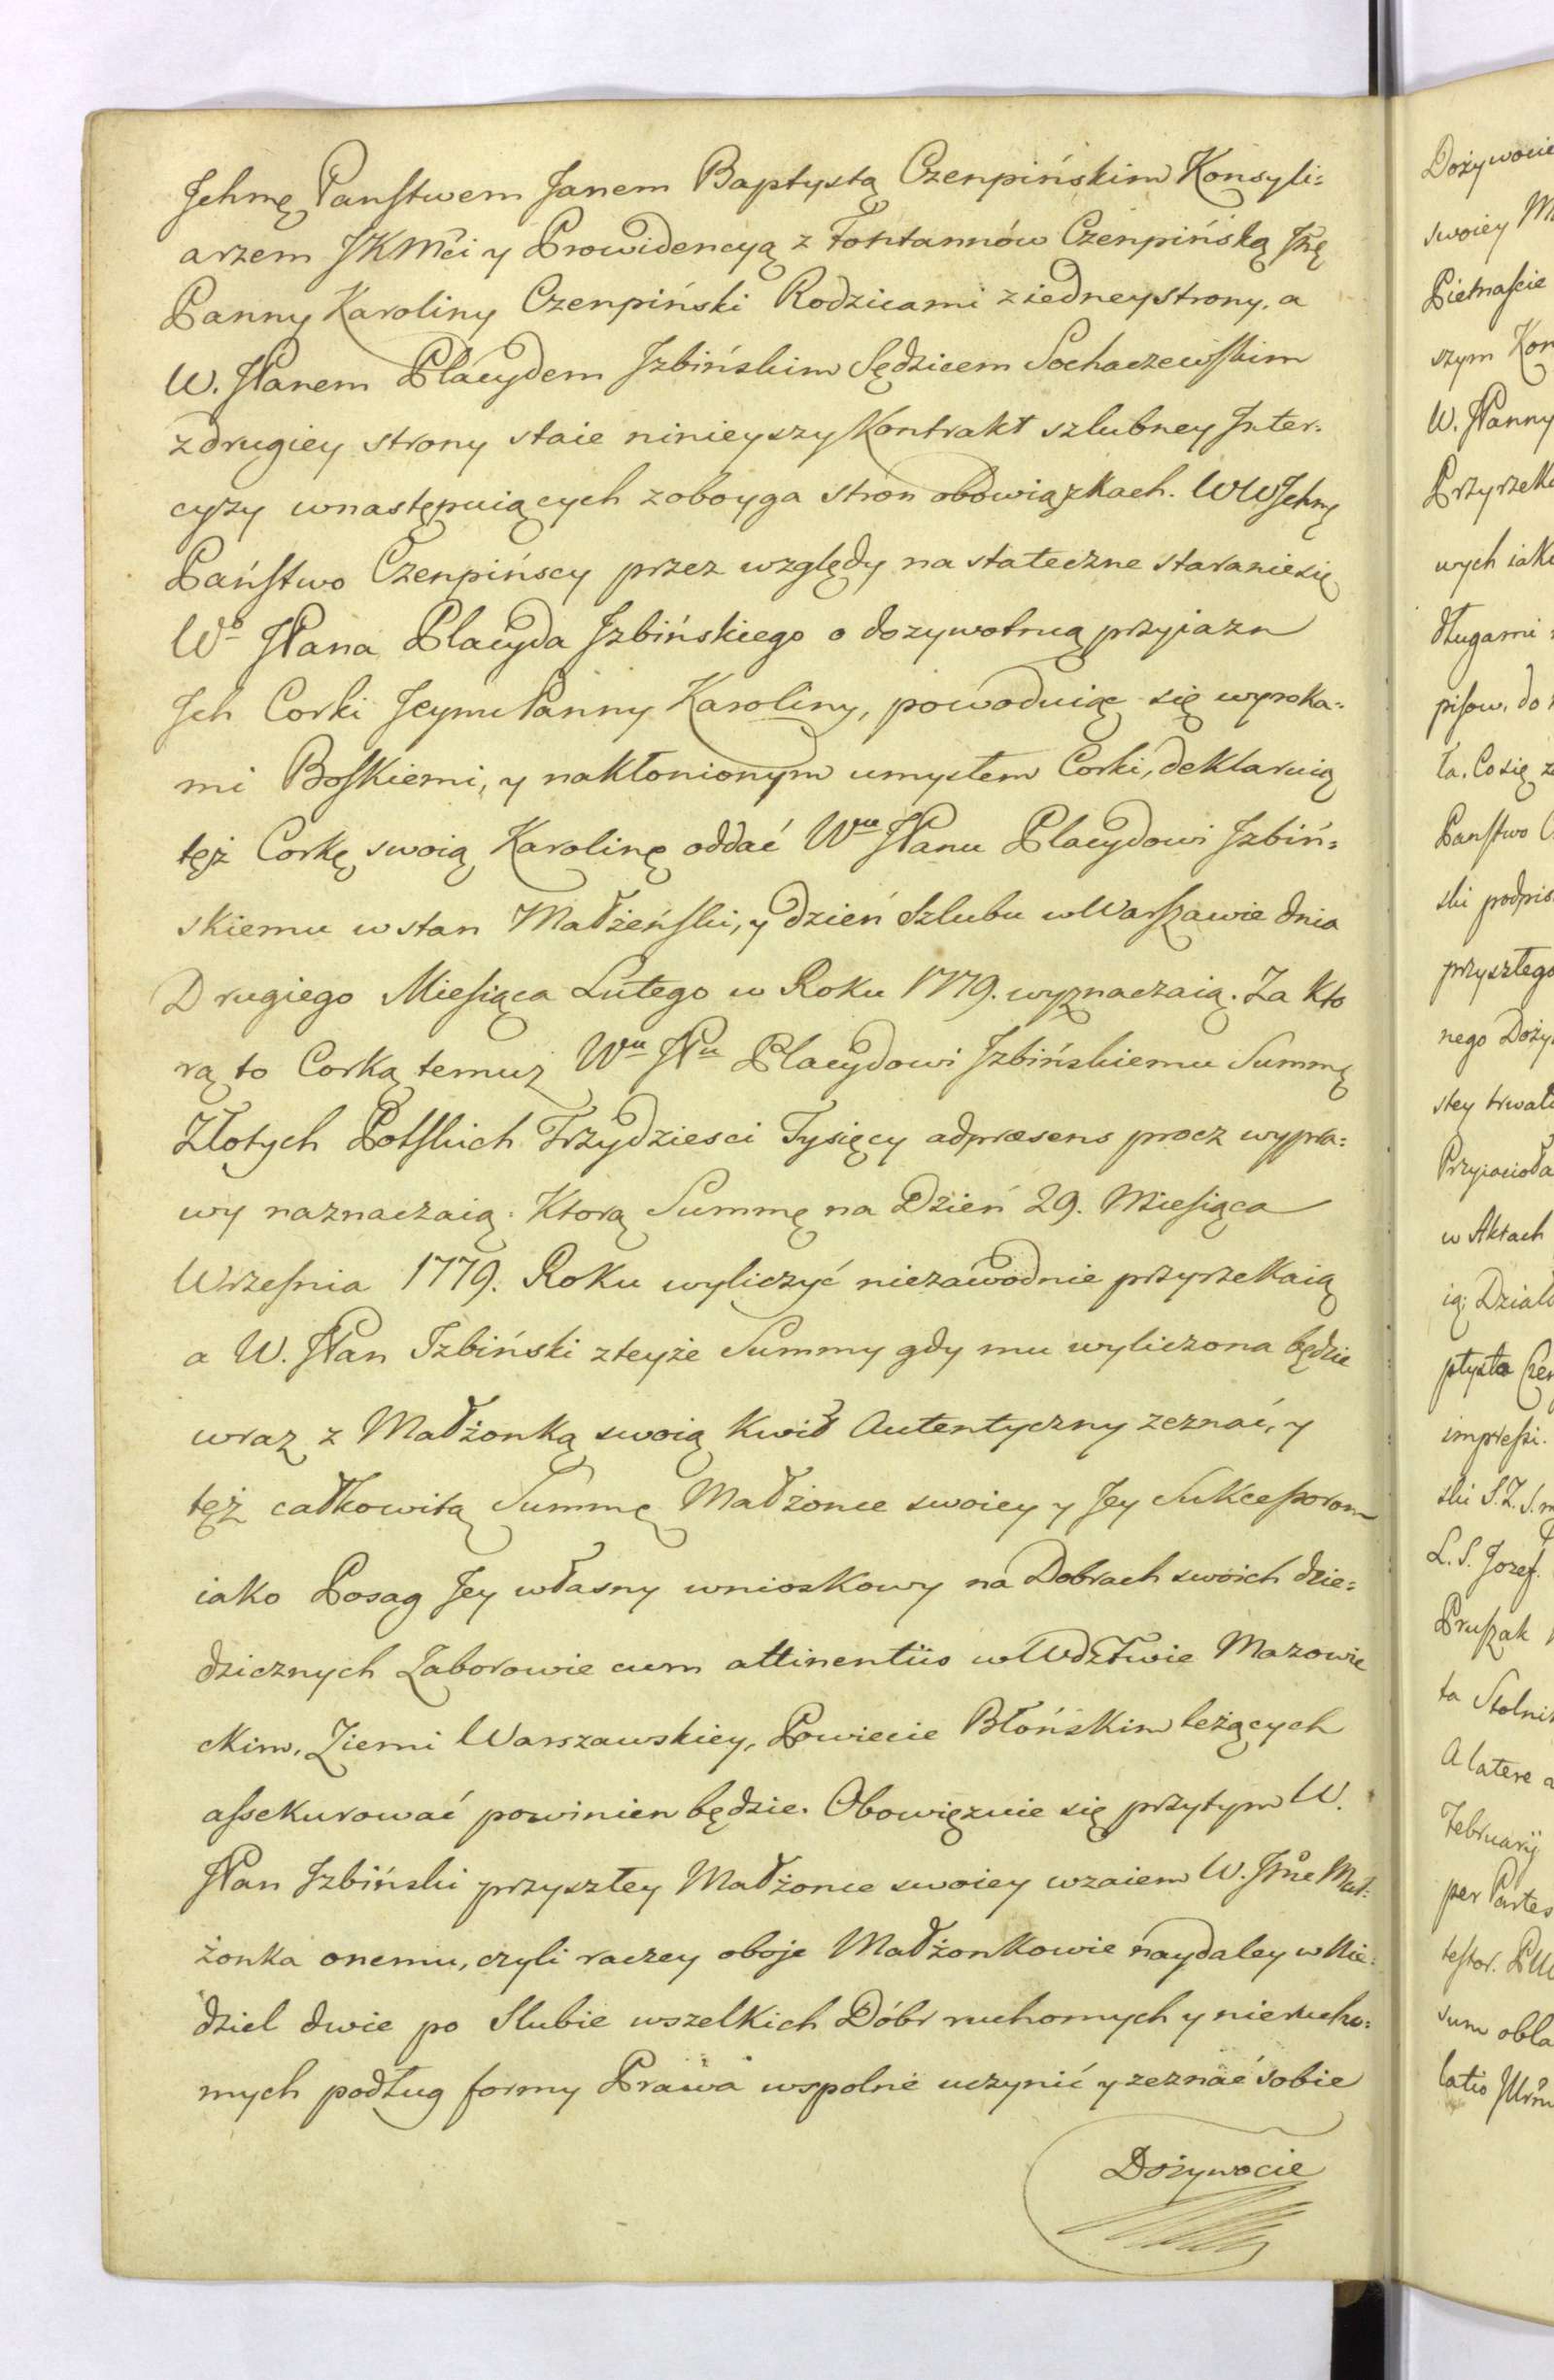 Jchmę Panstwem Janem Baptystą Czenpińskim Konsyli:
arzem JKMći y Prowidencyą z Fontannów Czenpińską Jmę
Panny Karoliny Czenpiński Rodzicami z iedney strony, a
W. JPanem Placydem Jzbińskim Sędzicem Sochaczewskim
z drugiey strony staie ninieyszy Kontrakt szlubney Jnter:
cyzy w następuiących z oboyga stron obowiązkach. WWJchmę
Państwo Czenpińscy przez względy na stateczne staranie się
Wo JPana Placyda Jzbińskiego o dozywotnią przyiazn
Jch Corki Jeymć Panny Karoliny, powoduiąc się wyroka:
mi Boskiemi, y nakłonionym umysłem Corki, deklaruią
tęż Corkę swoią Karolinę oddać Wu JPanu Placydowi Jzbiń:
skiemu w stan Małżeński, y dzień Szlubu w Warszawie dnia
Drugiego Miesiąca Lutego w Roku 1779. wyznaczaią. Za kto
rą to Corką temuz Wu JPu Placydowi Jzbińskiemu Summę
Złotych Polskich Trzydziesci Tysięcy adpræsens procz wypra:
wy naznaczaią. Ktorą Summę na Dzień 29. Miesiąca
Wrzesnia 1779. Roku wyliczyć niezawodnie przyrzekaią
a W. JPan Izbiński z teyże Summy gdy mu wyliczona będzie
wraz z Małżonką swoią Kwit Autentyczny zeznać, y
tęż całkowitą Summę Małżonce swoiey y Jey Sukcessorom
iako Posag Jey własny wnioskowy na Dobrach swoich dzie:
dzicznych Zaborowie cum attinentiis w Wdztwie Mazowie
ckim, Ziemi Warszawskiey, Powiecie Błońskim leżących
assekurować powinien będzie. Obowięzuie się przytym W.
JPan Jzbiński przyszłey Małżonce swoiey wzaiem W. Jmc Mał:
żonka onemu, czyli raczey oboje Małżonkowie naydaley w Nie:
dziel dwie po Slubie wszelkich Dóbr ruchomych y nierucho:
mych podług formy Prawa wspolne uczynić y zeznać sobie
Dożywocie
Dożywocie
swoiey M
Pietnascie
szym Kon
W. JPanny
Przyrzeka
wych iako
długami
pisow. do
ła. Co się z
Panstwo C
ski podpis
przyszłego
nego Doży
stey trwał
Przyiacioła
w Aktach
ią; Działo
ptysta Czen
impressi.
ski S. Z. S. m
L. S. Jozef.
Pruszak
ta Stolni
A latere a
Februarij
per Partes
testor.
sum obla
latio